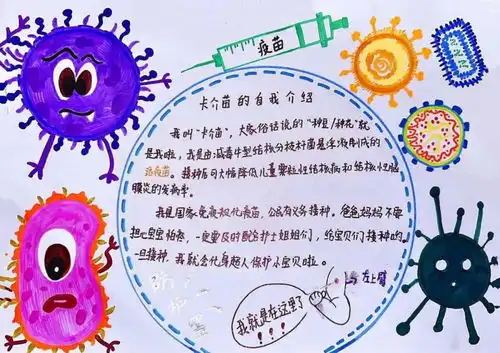 疫苗
卡介苗的自我介绍
我叫"卡介苗",大家俗话说的"种豆/种花"就
是我啦,我是由减毒牛型结核分枝杆菌悬浮液制成的
活疫苗。接种后可大幅降低儿童粟粒性结核病和结核性脑
膜炎的发病率。
我是国家免疫规化疫苗,公民有义务接种。爸爸妈妈不要
担心宝宝怕疼,一定要及时配合护士姐姐们,给宝贝们接种的。
一旦接种,我就会化身超人保护小宝贝啦。
左上臂
我就是在这里了
!!!